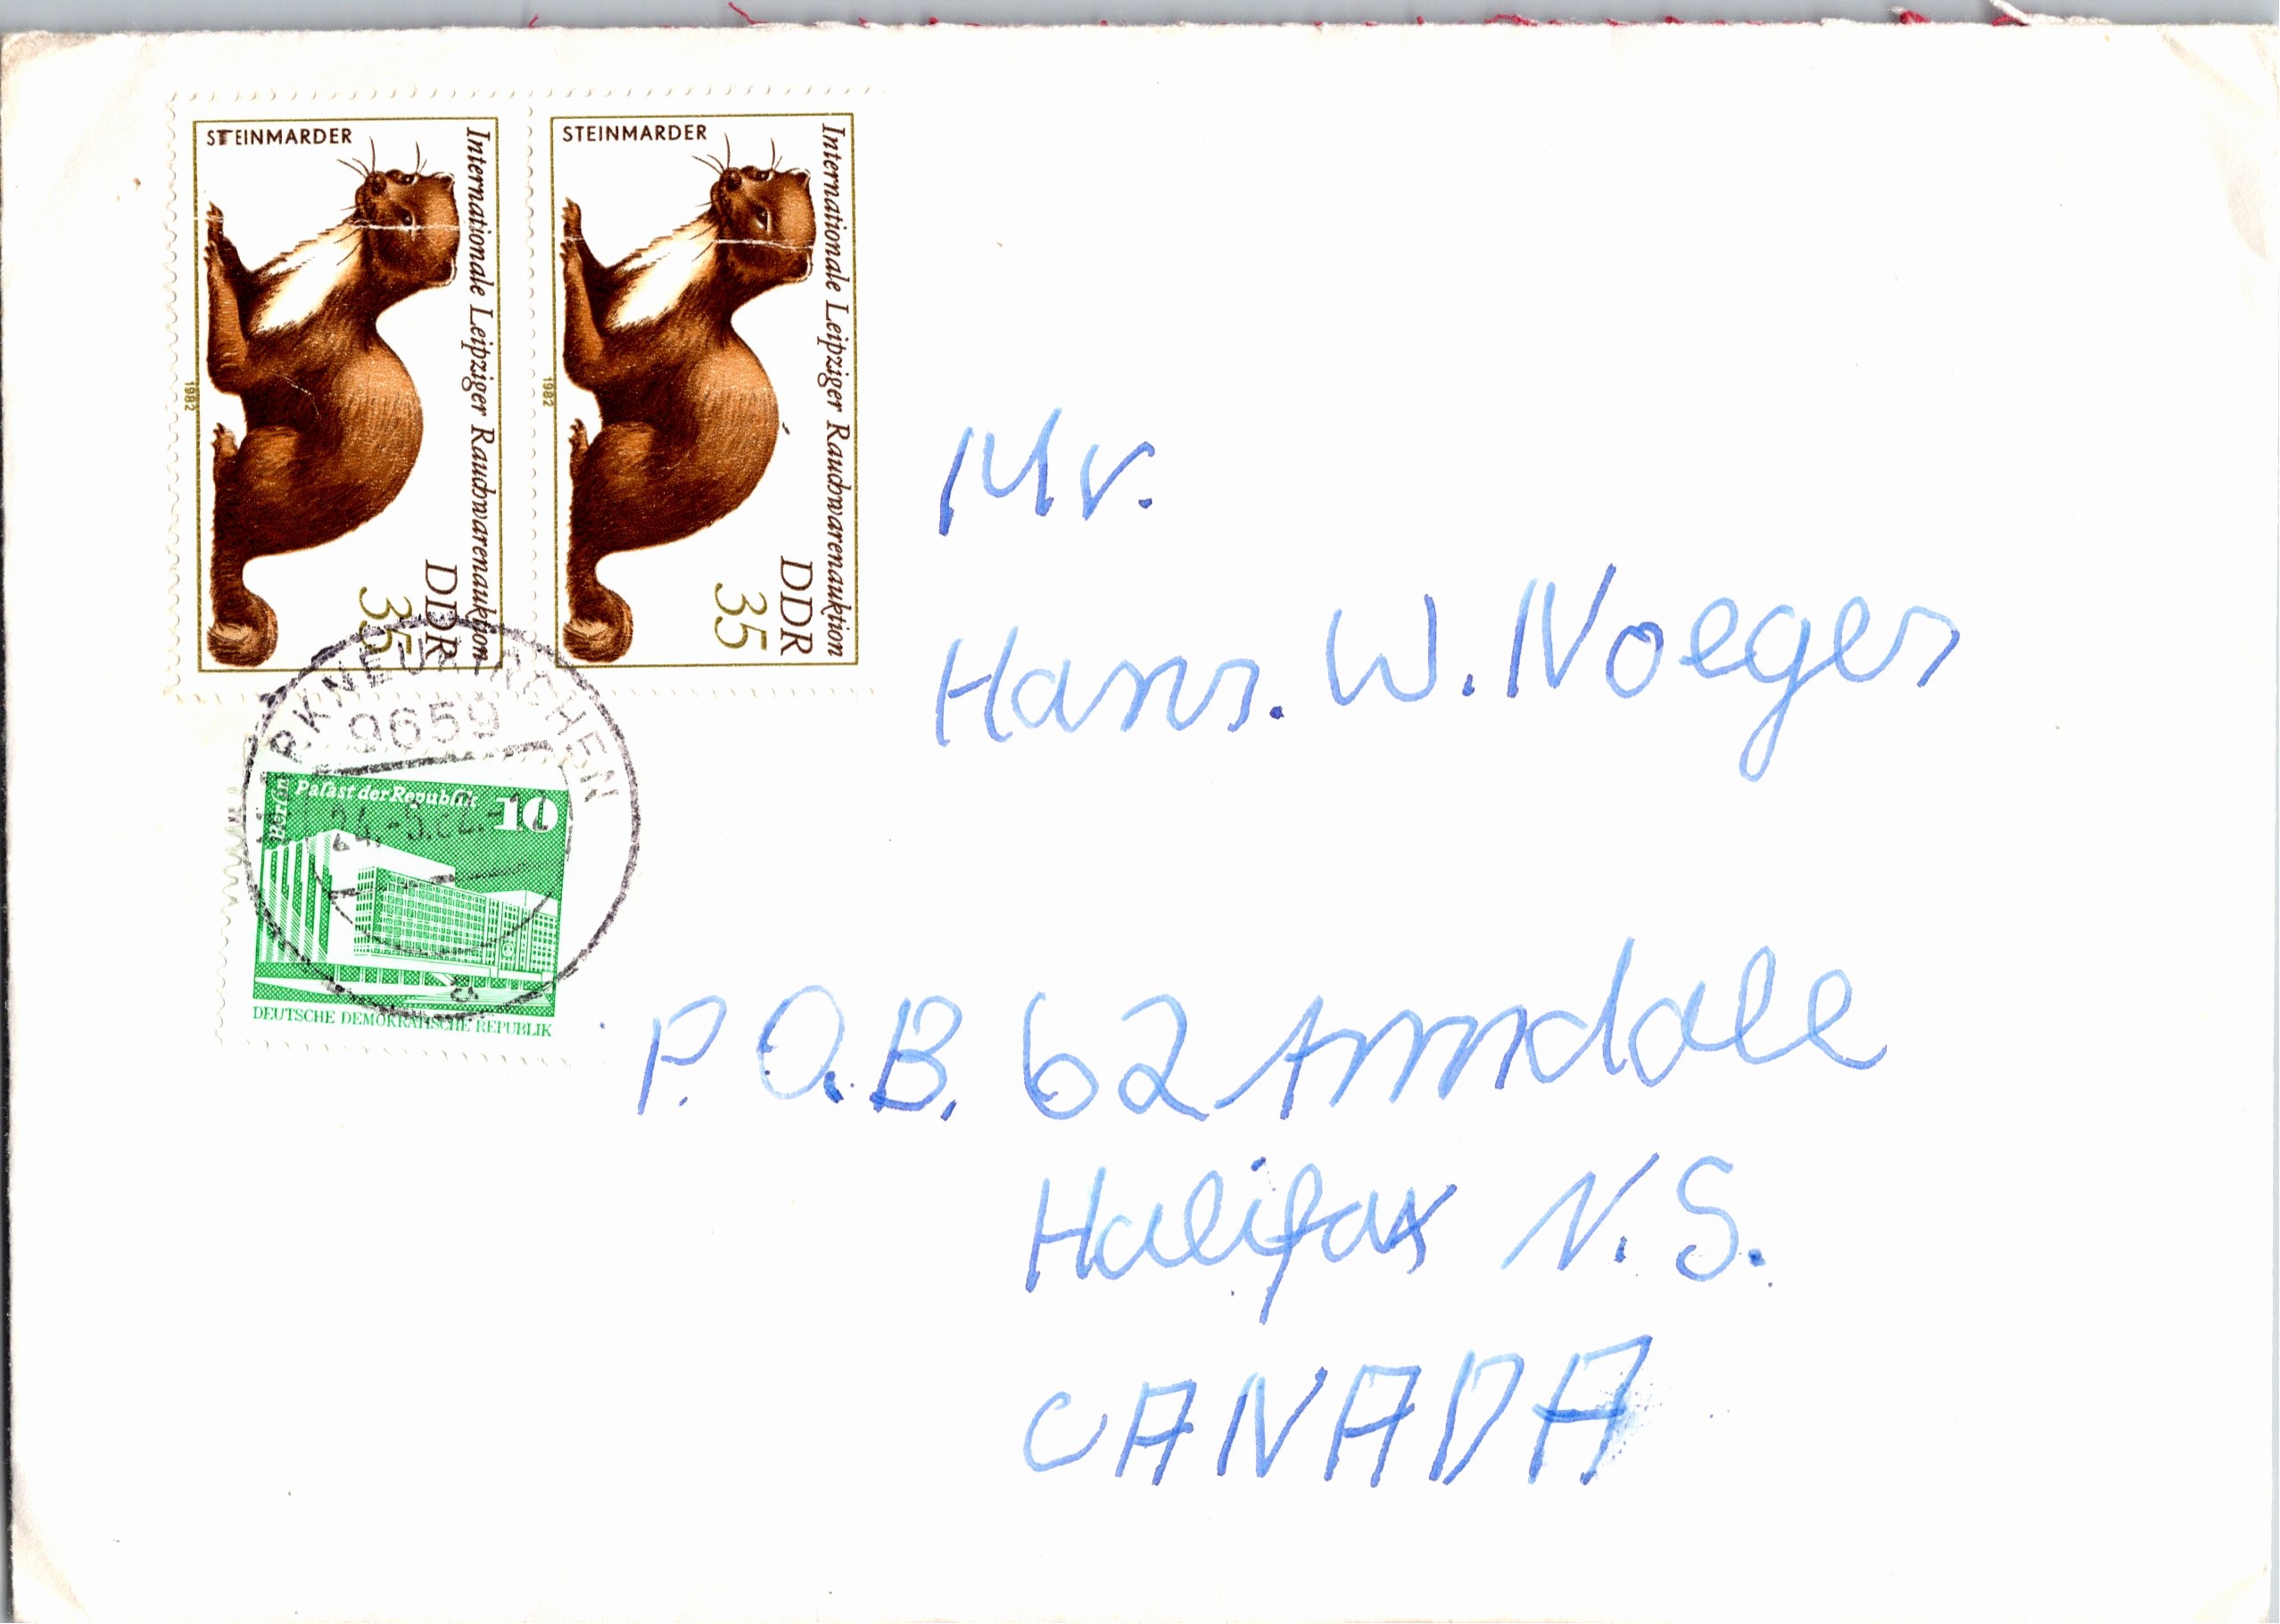 STEINMARDER
Internationale Leipziger Rauchwarenauktion
DDR
35
1982
STEINMARDER
Internationale Leipziger Rauchwarenauktion
DDR
35
1982
9659
Berlin
Palast der Republik
10
DEUTSCHE DEMOKRATISCHE REPUBLIK
Mr.
Hans. W. Noeger
P. O. B. 62 Armdale
Halifax N. S.
CANADA